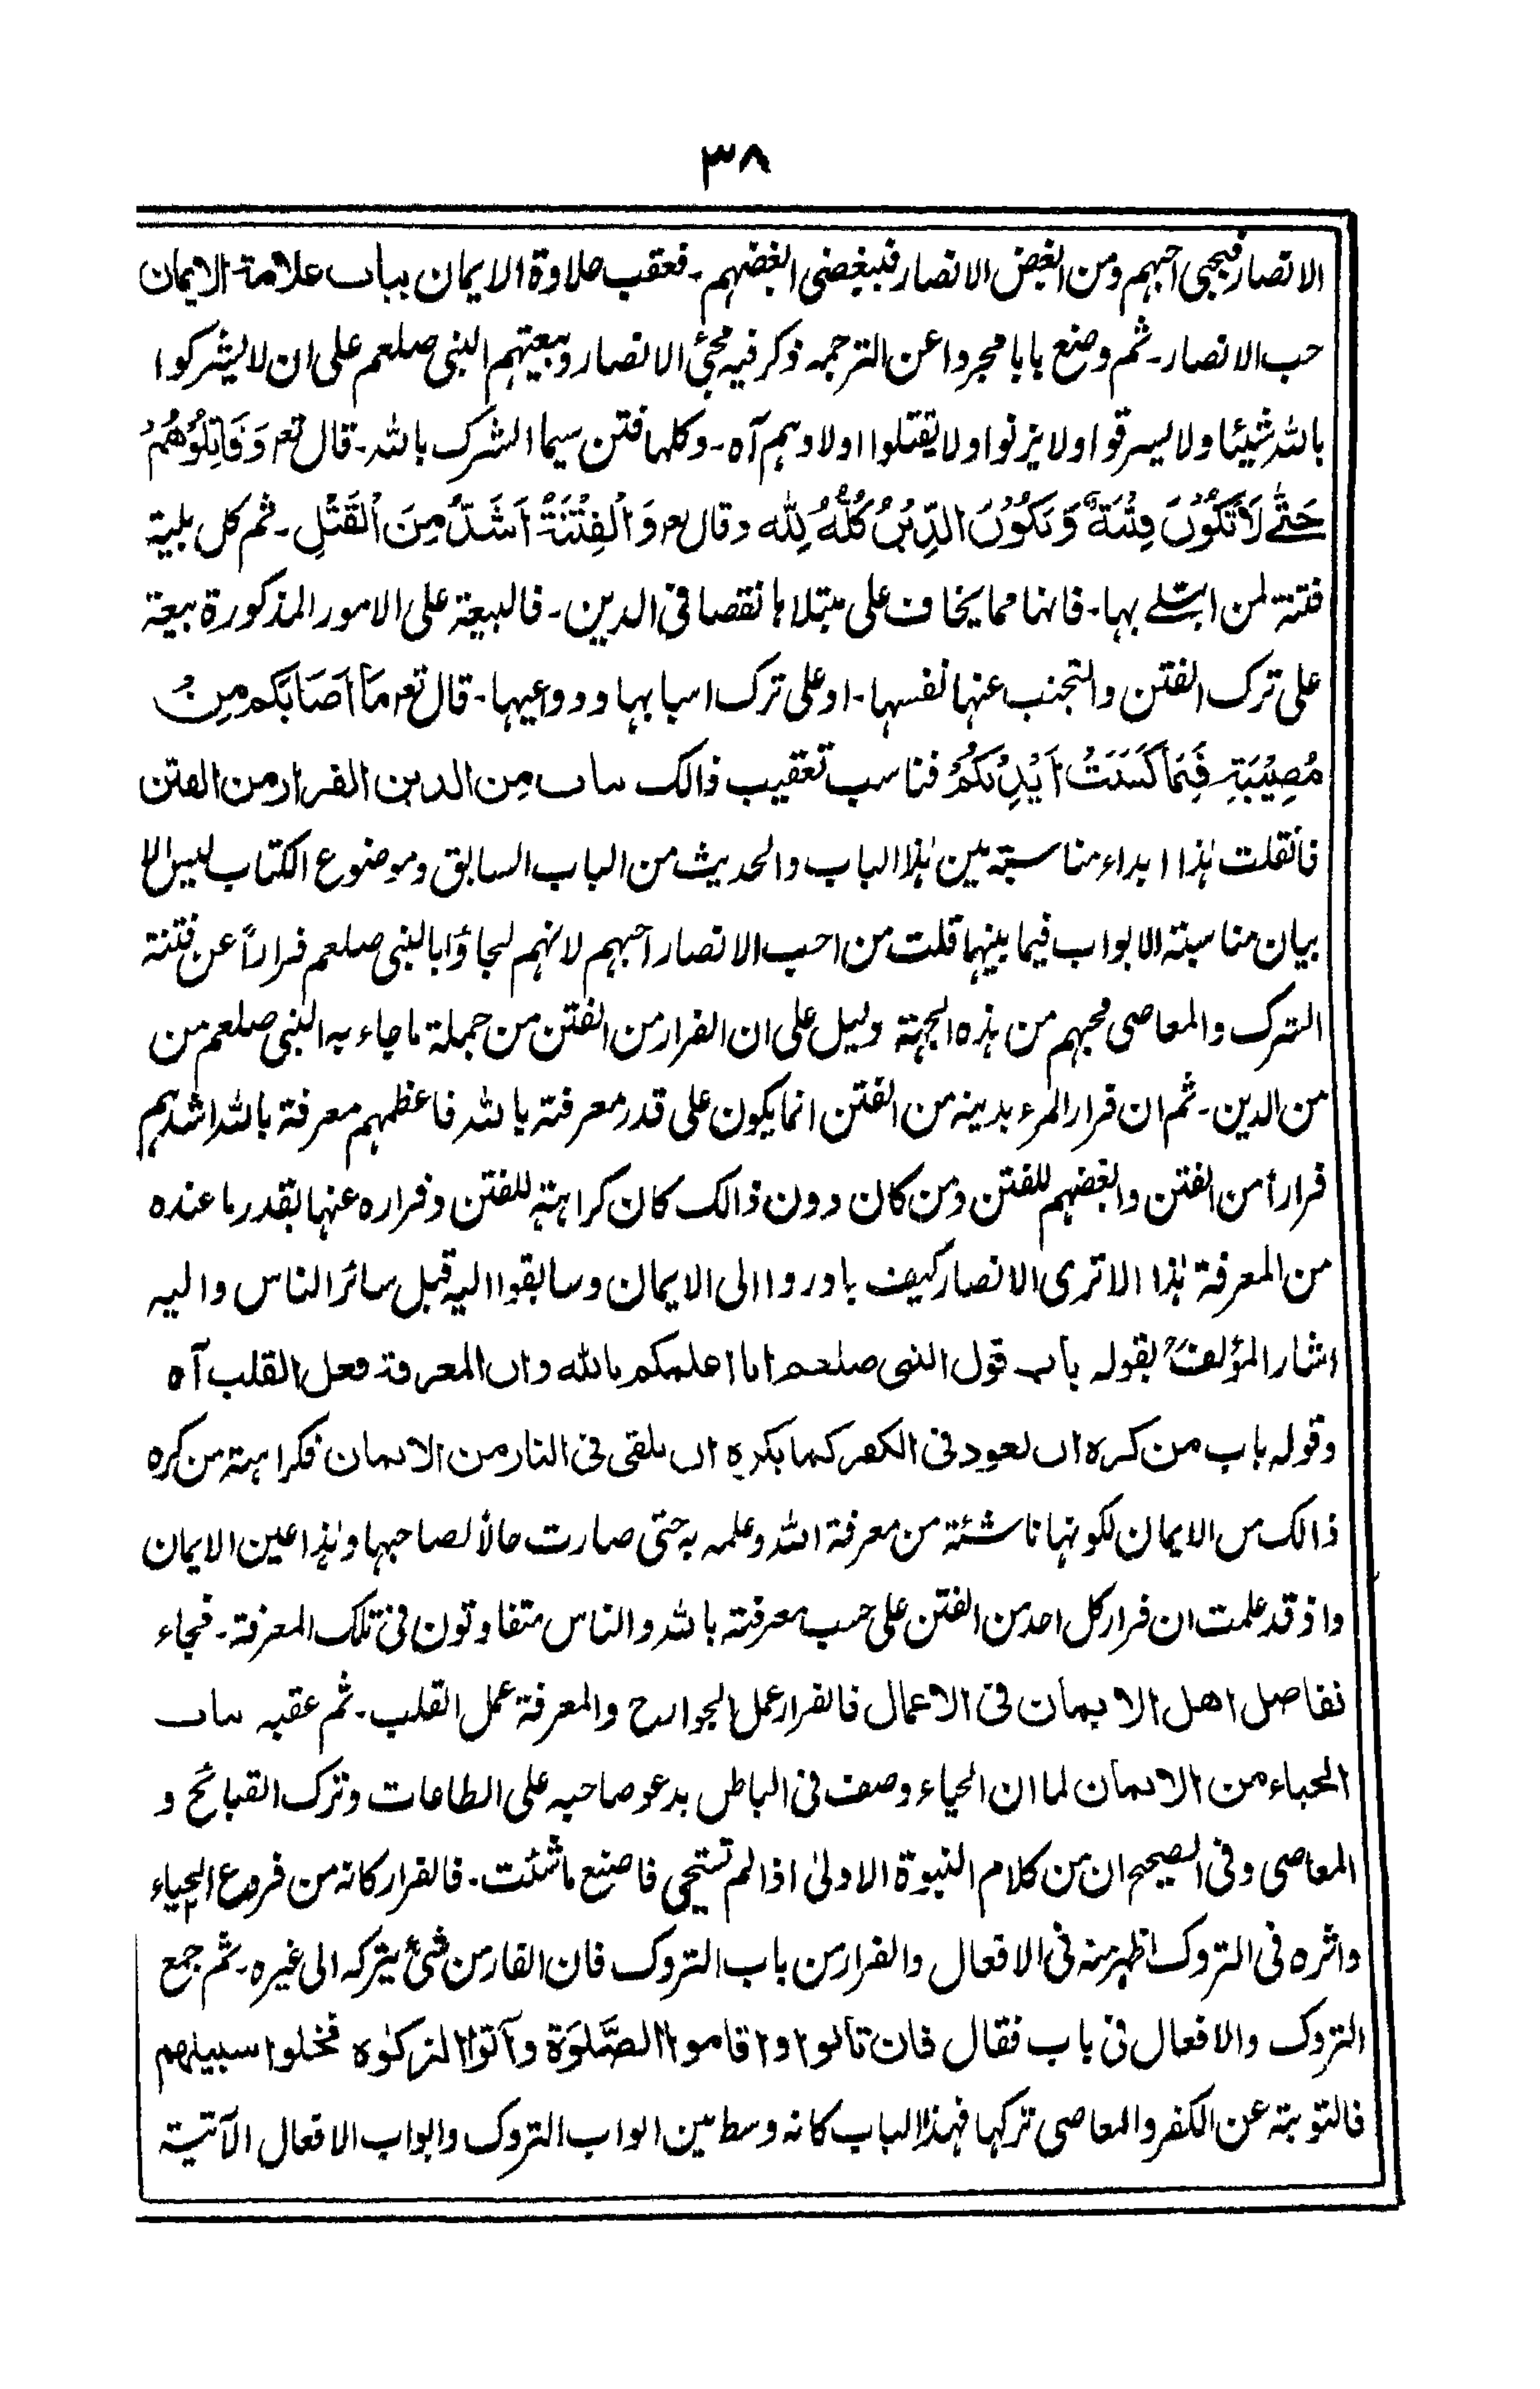 ٣٨
الانصار فبحبی احبهم ومن ابغض الانصار فببغضی ابغضهم۔ فعقب حلاوة الایمان بباب علامة الایمان
حب الانصار۔ ثم وضع بابا مجردا عن الترجمہ ذکر فیہ مجیٔ الانصار وبیعتهم النبی صلعم علی ان لا یشرکوا
باللہ شیئا ولا یسرقوا ولا یزنوا ولا یقتلوا اولادہم آہ۔ وکلها فتن سیما الشرک باللہ۔ قال تع وَقَاتِلُوْهُمْ
حَتّٰے لَا تَکُوْنَ فِتْنَةٌ وَّ یَکُوْنَ الدِّیْنُ کُلُّهٗ لِلّٰہ وقال تع وَالْفِتْنَةُ اَشَدُّ مِنَ الْقَتْلِ۔ ثم کل بلیة
فتنة لمن ابتلے بہا۔ فانہا مما یخاف علی مبتلاہا نقصا فی الدین۔ فالبیعة علی الامور المذکورة بیعة
علی ترک الفتن والتجنب عنہا نفسہا۔ او علی ترک اسبابہا ودواعیہا۔ قال تع مَا اَصَابَکُم مِنْ
مُصِیْبَةٍ فَبِمَا کَسَبَتْ اَیْدِیْکُمْ فناسب تعقیب ذالک باب من الدین الفرار من الفتن
فانقلت ہذا ابداء مناسبتہ بین ہذا الباب والحدیث من الباب السابق وموضوع الکتاب لیس الا
بیان مناسبتہ الابواب فیما بینہا قلت من احب الانصار احبهم لانهم لجاؤا بالنبی صلعم فراراً عن فتنة
الشرک والمعاصی فحبهم من ہذہ الجہتہ دلیل علی ان الفرار من الفتن من جملة ما جاء بہ النبی صلعم من
من الدین۔ ثم ان فرار المرء بدینہ من الفتن انما یکون علی قدر معرفتہ باللہ فاعظمهم معرفة باللہ اشدہم
فراراً من الفتن وابغضهم للفتن ومن کان دون ذالک کان کراہتہ للفتن وفرارہ عنہا بقدر ما عندہ
من المعرفة ہذا الا تری الانصار کیف بادروا الی الایمان وسابقوا الیہ قبل سائر الناس والیہ
اشار المؤلفؒ بقولہ باب قول النبی صلعم انا اعلمکم باللہ وان المعرفة فعل القلب آہ
وقولہ باب من کرہ ان یعود فی الکفر کما یکرہ ان یلقی فی النار من الایمان فکراہتہ من کرہ
ذالک من الایمان لکونہا ناشئة من معرفة اللہ وعلمہ بہ حتی صارت حالاً لصاحبہا وہذا عین الایمان
واذ قد علمت ان فرار کل احد من الفتن علی حسب معرفتہ باللہ والناس متفاوتون فی تلک المعرفة۔ فجاء
تفاضل اهل الایمان فی الاعمال فالفرار عمل الجوارح والمعرفة عمل القلب۔ ثم عقبہ باب
الحیاء من الایمان لما ان الحیاء وصف فی الباطن یدعو صاحبہ علی الطاعات وترک القبائح و
المعاصی وفی الصحیح ان من کلام النبوة الاولیٰ اذا لم تستحی فاصنع ما شئت۔ فالفرار کانہ من فروع الحیاء
واثرہ فی التروک اظہر منہ فی الافعال والفرار من باب التروک فان الفار من شیٔ یترکہ الی غیرہ۔ ثم جمع
التروک والافعال فی باب فقال فان تابوا واقاموا الصَّلوٰة وآتوا الزکوٰہ فخلوا سبیلهم
فالتوبتہ عن الکفر والمعاصی ترکہا فهذا الباب کانہ وسط بین ابواب التروک وابواب الافعال الآتیتہ